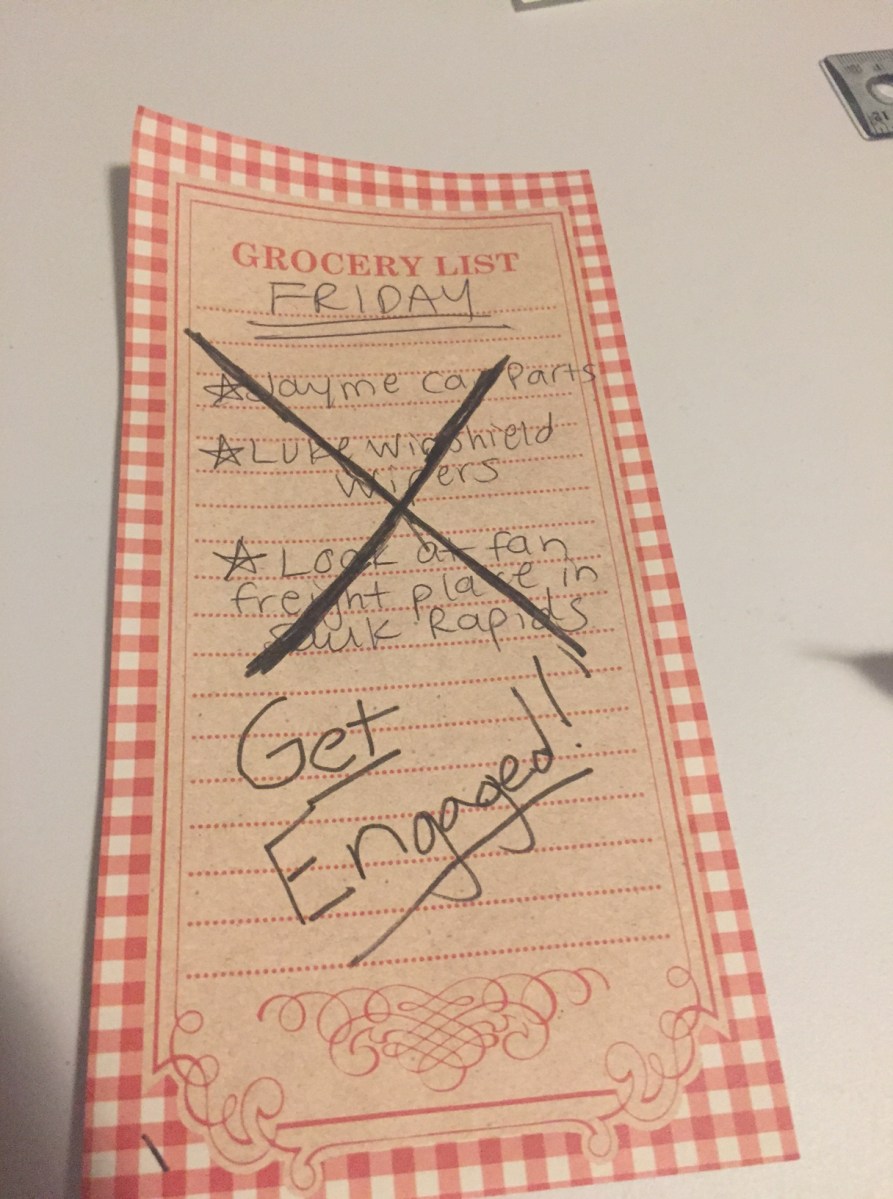 GROCERY LIST
FRIDAY
☆Jayme car Parts
☆LUKE Widshield
Wipers
☆ Look at fan
freight place in
Sauk Rapids
Get
Engaged!!